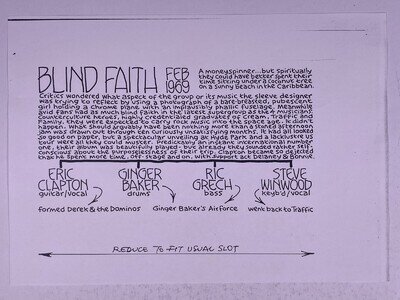 BLIND FAITH FEB 1969
A moneyspinner...but spiritually
they could have better spent their
time sitting under a coconut tree
on a sunny beach in the Caribbean.
Critics wondered what aspect of the group or its music the sleeve designer
was trying to reflect by using a photograph of a bare-breasted, pubescent
girl holding a chrome plane with an implausibly phallic fuselage. Meanwhile
avid fans had as much blind faith in the latest supergroup as the 4 musicians.
Counterculture heroes, highly credentialed graduates of Cream, Traffic and
Family, they were expected to carry rock music into the space age. It didn't
happen. What should arguably have been nothing more than a restorative
jam was drawn out through ten curiously unsatisfying months. It had all looked
so good on paper, but a spectacular unveiling at Hyde Park and a lacklustre US
tour were all they could muster. Predictably an instant international number
one, their album was beautifully played – but already they sounded rather self-
conscious about the humdrumness of their trip. Clapton became so desolate
that he spent more time, off-stage and on, with support act Delaney & Bonnie.
ERIC CLAPTON
guitar/vocal
GINGER BAKER
drums
RIC GRECH
bass
STEVE WINWOOD
keyb'd/vocal
formed Derek & the Dominos
Ginger Baker's Airforce
went back to Traffic
REDUCE TO FIT USUAL SLOT